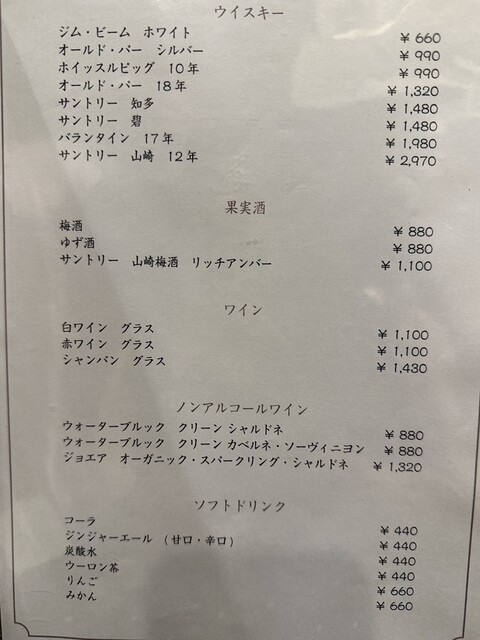 ウイスキー
ジム・ビーム　ホワイト ¥ 660
オールド・パー　シルバー ¥ 990
ホイッスルピッグ　10年 ¥ 990
オールド・パー　18年 ¥ 1,320
サントリー　知多 ¥ 1,480
サントリー　碧 ¥ 1,480
バランタイン　17年 ¥ 1,980
サントリー　山崎　12年 ¥ 2,970
果実酒
梅酒 ¥ 880
ゆず酒 ¥ 880
サントリー　山崎梅酒　リッチアンバー ¥ 1,100
ワイン
白ワイン　グラス ¥ 1,100
赤ワイン　グラス ¥ 1,100
シャンパン　グラス ¥ 1,430
ノンアルコールワイン
ウォーターブルック　クリーン シャルドネ ¥ 880
ウォーターブルック　クリーン カベルネ・ソーヴィニヨン ¥ 880
ジョエア　オーガニック・スパークリング・シャルドネ ¥ 1,320
ソフトドリンク
コーラ ¥ 440
ジンジャーエール　(甘口・辛口) ¥ 440
炭酸水 ¥ 440
ウーロン茶 ¥ 440
りんご ¥ 660
みかん ¥ 660